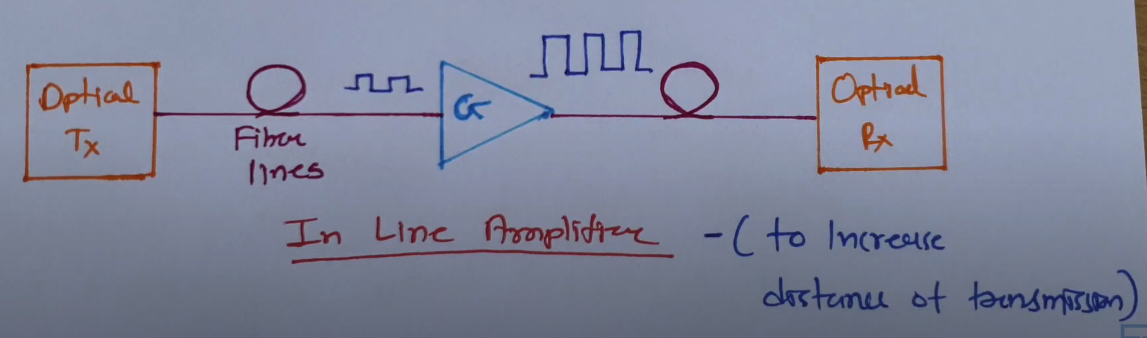 Optical
Tx
Fiber
lines
G
Optical
Rx
In Line Amplifier - ( to Increase
distance of transmission)